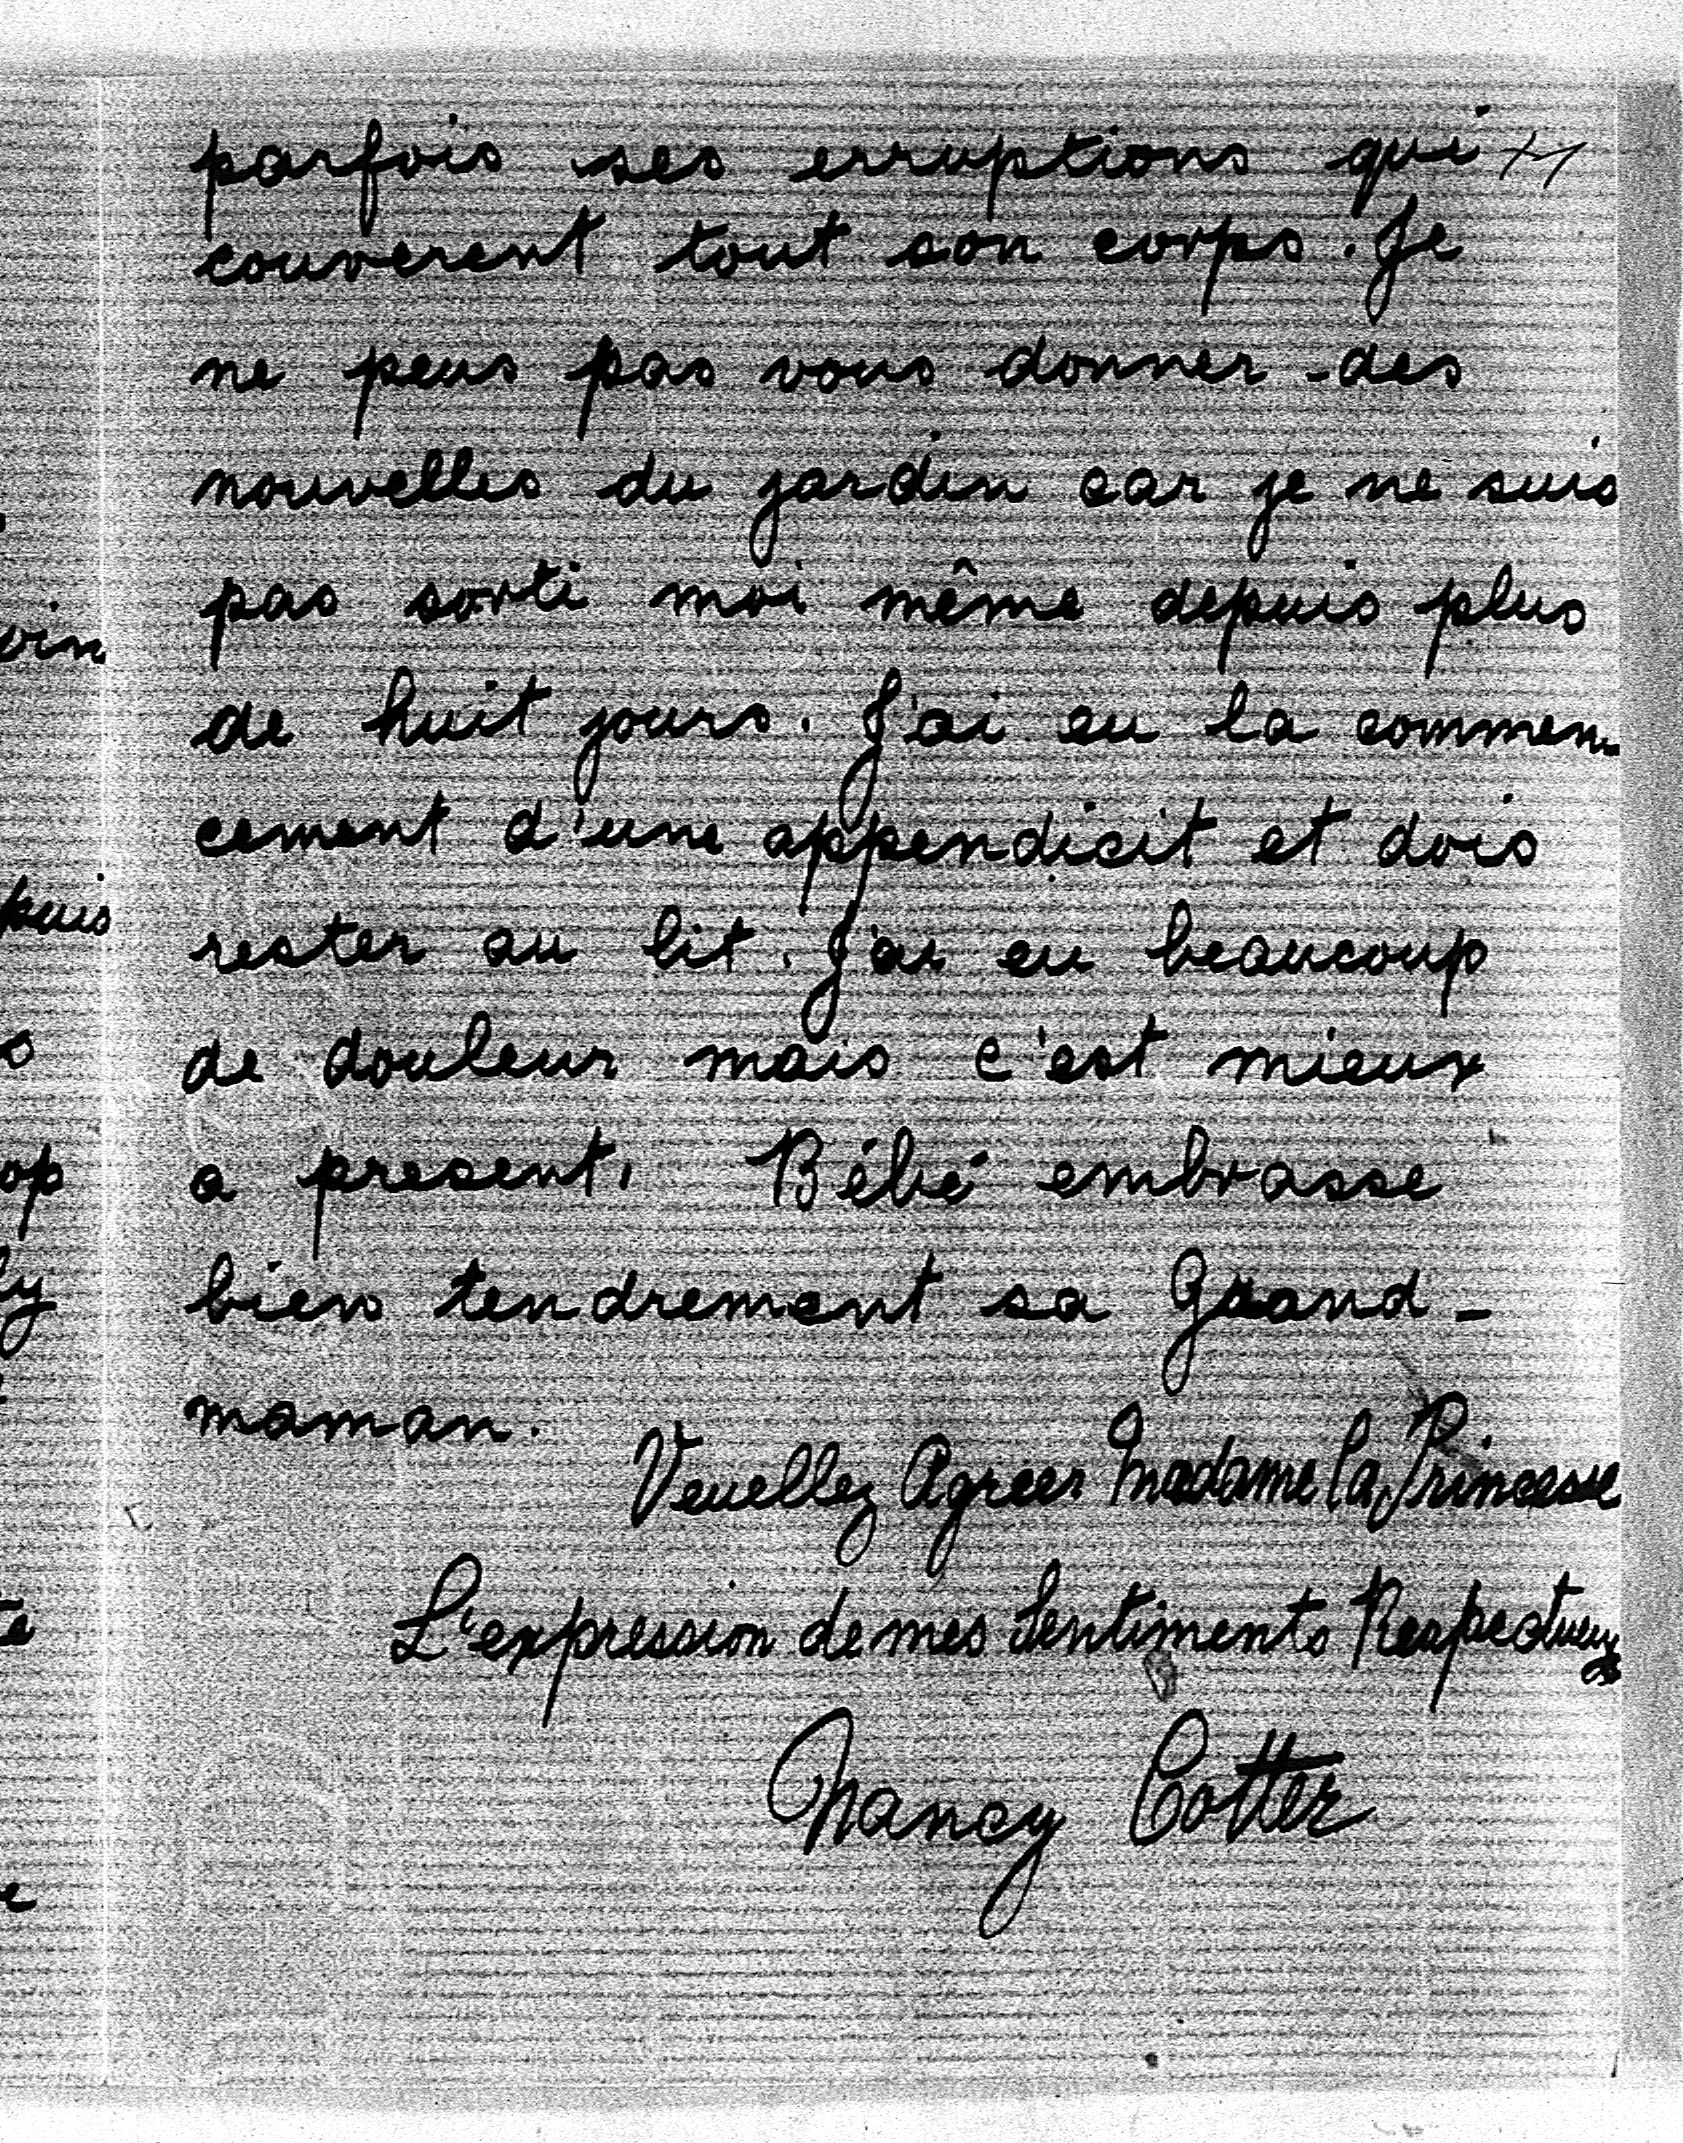 parfois ses erruptions qui
couverent tout son corps. Je
ne peus pas vous donner des
nouvelles du jardin car je ne suis
pas sorti moi même depuis plus
de huit jours. J'ai eu la commen
cement d'une appendicit et dois
rester au lit. J'ai eu beaucoup
de douleur mais c'est mieux
a present. Bébé embrasse
bien tendrement sa Grand-
maman.
Veuellez Agreer Madame la Princesse
L'expression de mes Sentiments Respectueux
Nancy Cotter